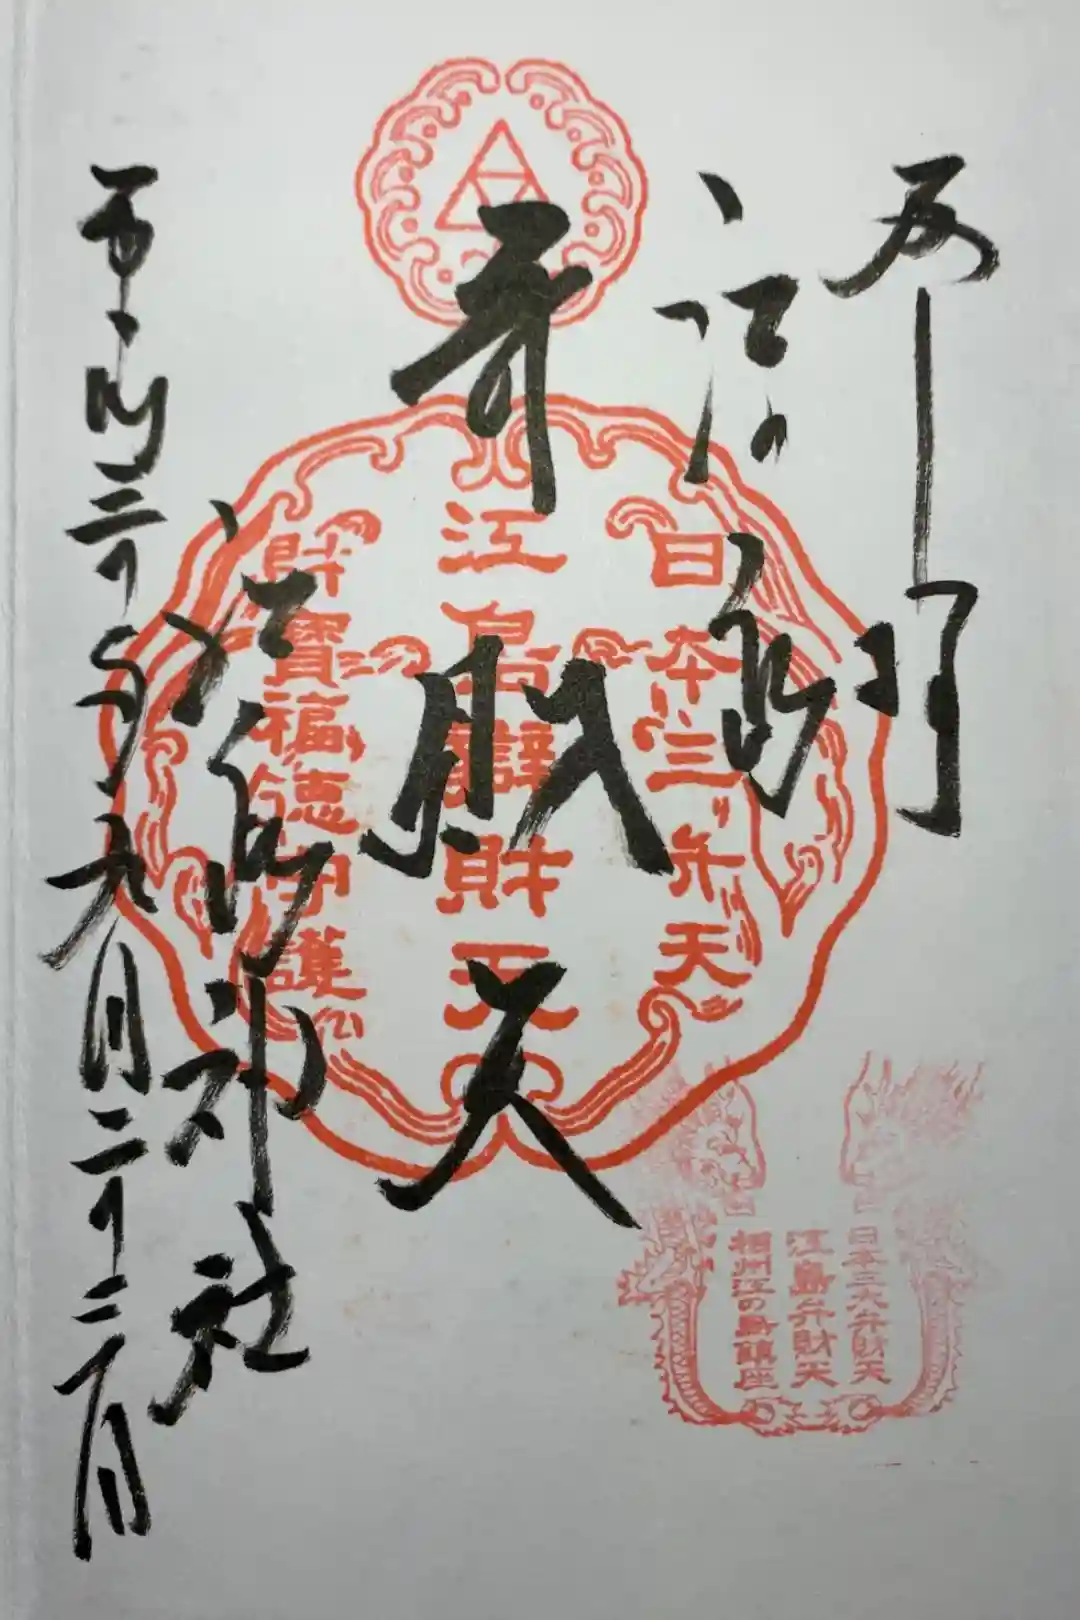 奉拝
江の島
弁財天
江島神社
平成二十九年九月二十二日
日本三弁天
江島辨財天
財寶福徳守護
日本三大弁財天
江島弁財天
相州江の島鎮座